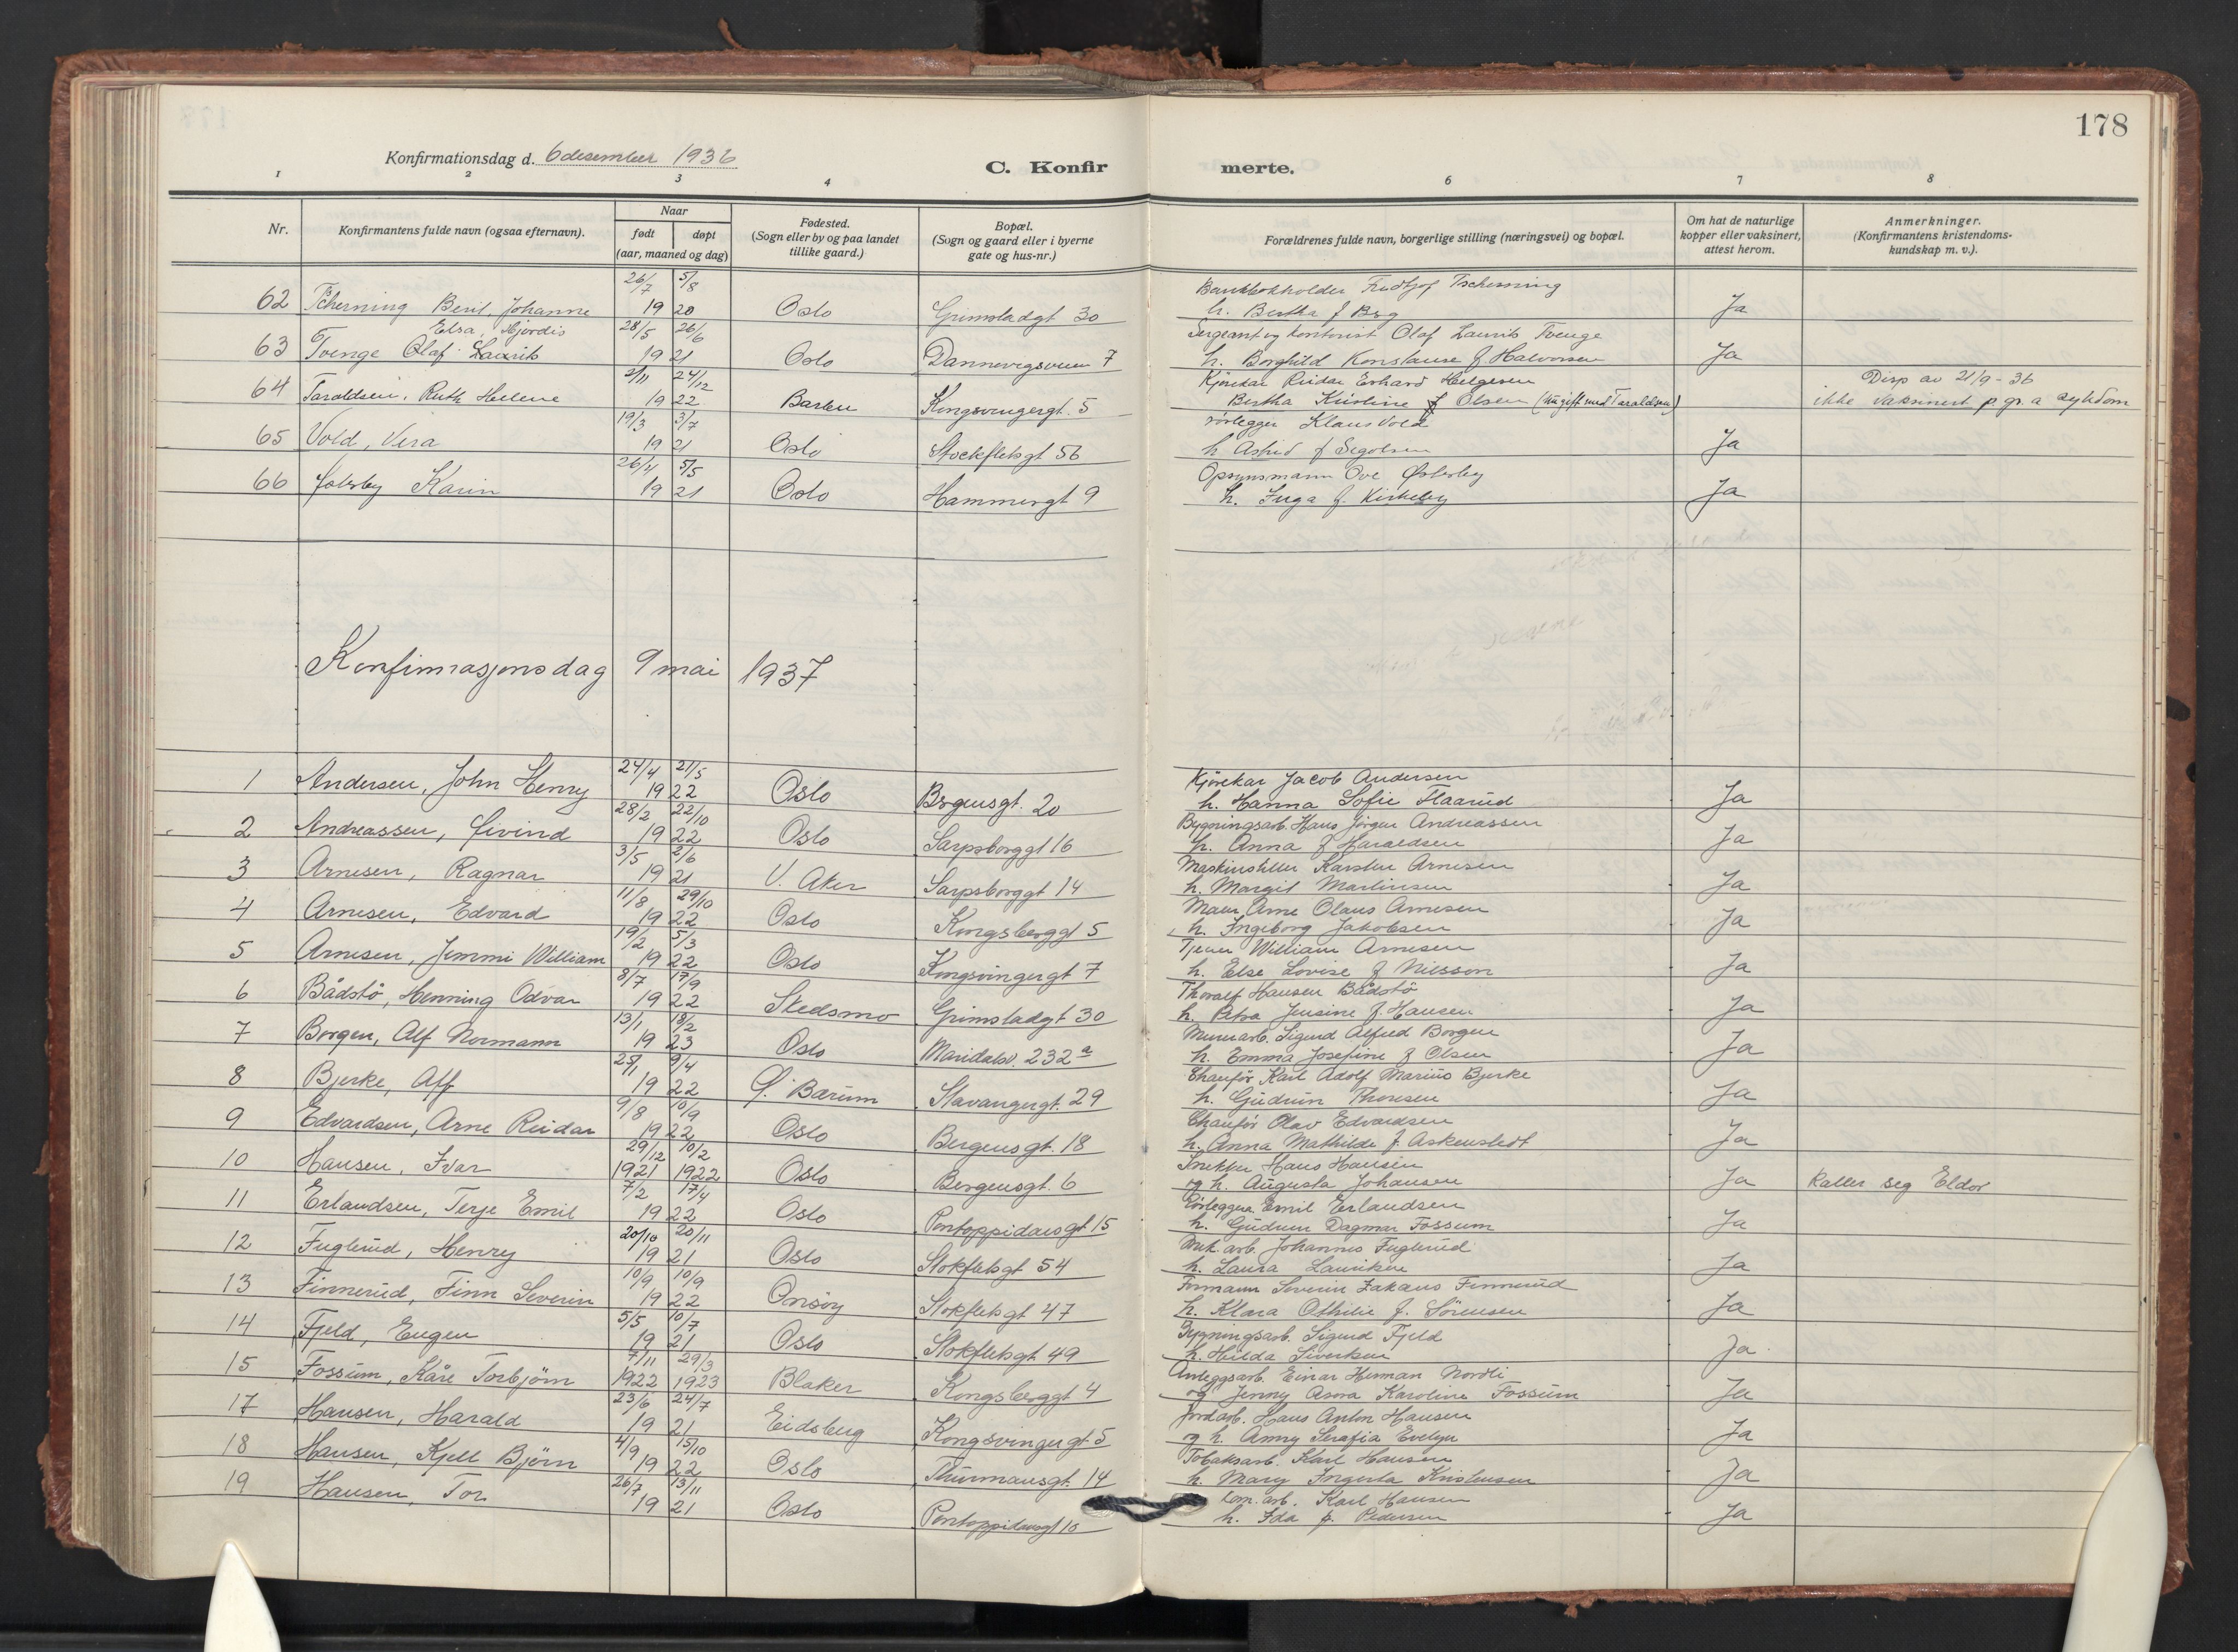 178
Konfirmationsdag d. 6 desember 1936
C. Konfirmerte.
1 2 3 4 6 7 8
Nr.
Konfirmantens fulde navn (ogsaa efternavn).
Naar
født døpt
(aar, maaned og dag)
Fødested.
(Sogn eller by og paa landet
tillike gaard.)
Bopæl.
(Sogn og gaard eller i byerne
gate og hus-nr.)
Forældrenes fulde navn, borgerlige stilling (næringsvei) og bopæl.
Om hat de naturlige
kopper eller vaksinert,
attest herom.
Anmerkninger.
(Konfirmantens kristendoms-
kundskap m. v.).
26/7 5/8 Bankbokholder Fredtjof Tscherning
62 Tscherning Berit Johanne 19 20 Oslo Grimstadgt 30 h. Bertha f Berg Ja
Elsa, Hjördis 28/5 26/6 Sergeant og kontorist Olaf Laurits Tvenge
63 Tvenge Olaf Laurits 19 21 Oslo Dannevigsveien 7 h. Borghild Konstanse f Halvorsen Ja
2/11 24/12 Kjørekar Reidar Erhard Helgesen Disp av 21/9-36
64 Taraldsen, Ruth Helene 19 22 Kongsvingergt. 5 Bertha Kristine f Olsen (nu gift med Taraldsen) ikke vaksinert p. gr. a sykdom
19/3 3/7 rørlegger Klaus Vold
65 Vold, Vera 19 21 Oslo Stockfletsgt 56 h Astrid f Ja
26/4 5/5 Opsynsmann Ove Østerby
66 Karin 19 21 Oslo Hammersgt 9 h. Inga f. Kirkeby Ja
Konfirmasjonsdag 9 mai 1937
24/4 21/5 Kjørekar Jacob Andersen
1 Andersen, John Henry 19 22 Oslo Bergensgt. 20 h. Hanna Sofie Flaarud Ja
28/2 22/10 Bygningsarb. Hans Jörgen Andreassen
2 Andreassen, Øivind 19 22 Oslo Sarpsborggt 16 h. Anna f Haraldsen Ja
3/5 2/6 Karsten Arnesen
3 Arnesen, Ragnar 19 21 V. Aker Sarpsborggt 14 h. Margit Martinsen Ja
11/8 29/10 Arne Olaus Arnesen
4 Arnesen, Edvard 19 22 Oslo Kongsberggt 5 h. Ingeborg Jakobsen Ja
19/2 5/3 Tjener William Arnesen
5 Arnesen, Jemmi William 19 22 Oslo Kongsvingergt 7 h. Else Lovise f Nilsson Ja
8/7 17/9 Thoralf Hansen Bådstö
6 Bådstö, Henning Odvar 19 22 Skedsmo Grimstadgt 30 h. Petra Jensine f. Hansen Ja
13/1 18/2 Murarb. Sigurd Alfred Borgen
7 Borgen, Alf Normann 19 23 Oslo Maridalsv. 232 a h. Emma Josefine f Olsen Ja
25/1 9/4 Chauför Karl Adolf Marius Bjerke
8 Bjerke, Alf 19 22 Bærum Stavangergt. 29 h. Gudrun Thoresen Ja
9/8 10/9 Chauför Olav Edvardsen
9 Edvardsen, Arne Reidar 19 22 Oslo Bergensgt. 18 h. Anna Mathilde f. Askenstedt Ja
29/12 10/2 Snekker Hans Hansen
10 Hansen, Ivar 1921 1922 Oslo Bergensgt. 6 og h. Augusta Johansen Ja Kaller seg Eldor
7/2 17/4 Rørlegger Emil Erlandsen
11 Erlandsen, Terje Emil 19 22 Oslo Pontoppidansgt 15 h. Gudrun Dagmar Fossum Ja
20/10 20/11 Mek. arb. Johannes Fuglerud
12 Fuglerud, Henry 19 21 Oslo Stokfletsgt 54 h. Laura Lauritsen Ja
10/9 10/9 Formann Severin Zakaus Finnerud
13 Finnerud, Finn Severin 19 22 Onsöy Stokfletsgt 47 h. Klara Othilie f. Sörensen Ja
5/5 10/7 Bygningsarb. Sigurd Fjeld
14 Fjeld, Eugen 19 21 Oslo Stokfletsgt 49 h. Hilda Sivertsen Ja.
7/11 29/3 Anleggsarb. Einar Herman Nordli
15 Fossum, Kåre Torbjörn 1922 1923 Blaker Kongsberggt 4 og Jenny Asora Karoline Fossum Ja
23/6 24/7 Jordarb. Hans Anton Hansen
17 Hansen, Harald 19 21 Eidsberg Kongsvingergt 5 og h. Anny Serafia Evelyn Ja
4/9 15/10 Tobaksarb. Karl Hansen
18 Hansen, Kjell Björn 19 22 Oslo Thurmansgt. 14 h. Mary Ingerta Kristensen Ja
26/7 13/11 Kom. arb. Karl Hansen
19 Hansen, Tor 19 21 Oslo Pontoppidansgt 10 h. Ida f. Pedersen Ja